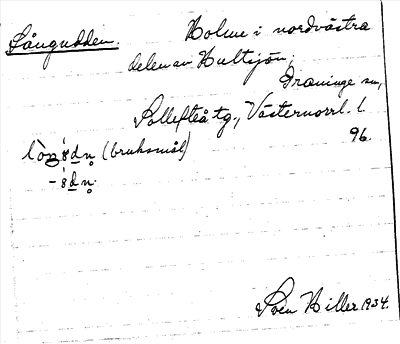 Långudden.
Holme i nordvästra
delen av Hultsjön,
Graninge sn,
Sollefteå tg., Västernorrl. l.
96.
(bruksmål)
Sven Hiller 1934.